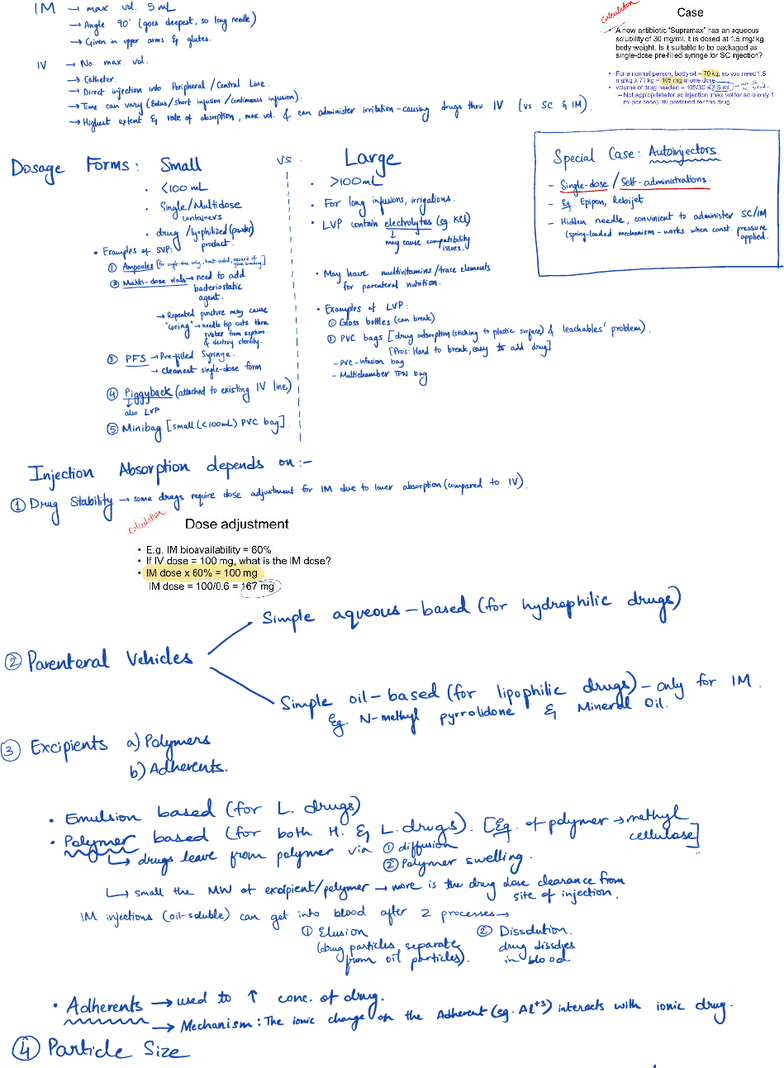 IM → max vol. 5 mL
→ Angle 90° (goes deepest, so long needle)
→ Given in upper arms & glutes.
IV → No max. vol.
→ Catheter.
→ Direct injection into Peripheral / Central Line.
→ Time can vary (Bolus/short infusion/continuous infusion).
→ Highest extent & rate of absorption, max. vol. & can administer irritation-causing drugs thru IV (vs SC & IM).
Calculation
Case
• A new antibiotic "Supramax" has an aqueous
solubility of 30 mg/ml. It is dosed at 1.5 mg/kg
body weight. Is it suitable to be packaged as
single-dose pre-filled syringe for SC injection?
• For a normal person, body wt = 70 kg, so you need 1.5
mg/kg x 70 kg = 105 mg in one dose
• volume of drug needed = 105/30 = 3.5 ml
– Not appropriate for sc injection (max vol for sc is only 1
ml per dose); IM preferred for this drug
Dosage Forms: Small vs Large
• <100 mL
• Single/Multidose
containers
• drug /lyophilized (powder)
product.
• Examples of SVP:
① Ampoules
② Multi-dose vials → need to add
bacteriostatic
agent.
→ Repeated puncture may cause
"coring" → needle tip cuts thru
rubber from septum
& destroy sterility.
③ PFS → Pre-filled Syringe.
→ cleanest single-dose form
④ Piggyback (attached to existing IV line)
↓ also LVP
⑤ Minibag [small (<100mL) PVC bag].
• >100mL
• For long infusions, irrigations.
• LVP contain electrolytes (eg. KCl)
↓
may cause compatibility
issues.
• May have multivitamins/trace elements
for parenteral nutrition.
• Examples of LVP:
① Glass bottles (can break)
② PVC bags [drug adsorption (sticking to plastic surface) & leachables' problem).
[Pros: Hard to break, easy to add drug]
– PVC-infusion bag
– Multichamber TPN bag
Special Case: Autoinjectors
– Single-dose / Self-administrations.
– Eg. Epipen, Rebijet
– Hidden needle, convinient to administer SC/IM
(spring-loaded mechanism – works when const. pressure
applied.
Injection Absorption depends on:-
① Drug Stability → some drugs require dose adjustment for IM due to lower absorption (compared to IV).
Calculation
Dose adjustment
• E.g. IM bioavailability = 60%
• If IV dose = 100 mg, what is the IM dose?
• IM dose x 60% = 100 mg
IM dose = 100/0.6 = 167 mg
Simple aqueous – based (for hydrophilic drugs)
② Parenteral Vehicles
Simple oil – based (for lipophilic drugs) – only for IM.
Eg. N-methyl pyrrolidone & Mineral Oil.
③ Excipients a) Polymers
b) Adherents.
• Emulsion based (for L. drugs)
• Polymer based (for both H. & L. drugs). [Eg. of polymer → methyl
cellulose]
↳ drugs leave from polymer via ① diffusion
② Polymer swelling.
↳ small the MW of excipient/polymer → more is the drug dose clearance from
site of injection.
IM injections (oil-soluble) can get into blood after 2 processes →
① Elusion ② Dissolution.
(drug particles separate drug dissolves
from oil particles). in blood
• Adherents → used to ↑ conc. of drug.
→ Mechanism: The ionic change on the Adherent (eg. Al⁺³) interacts with ionic drug.
④ Particle Size